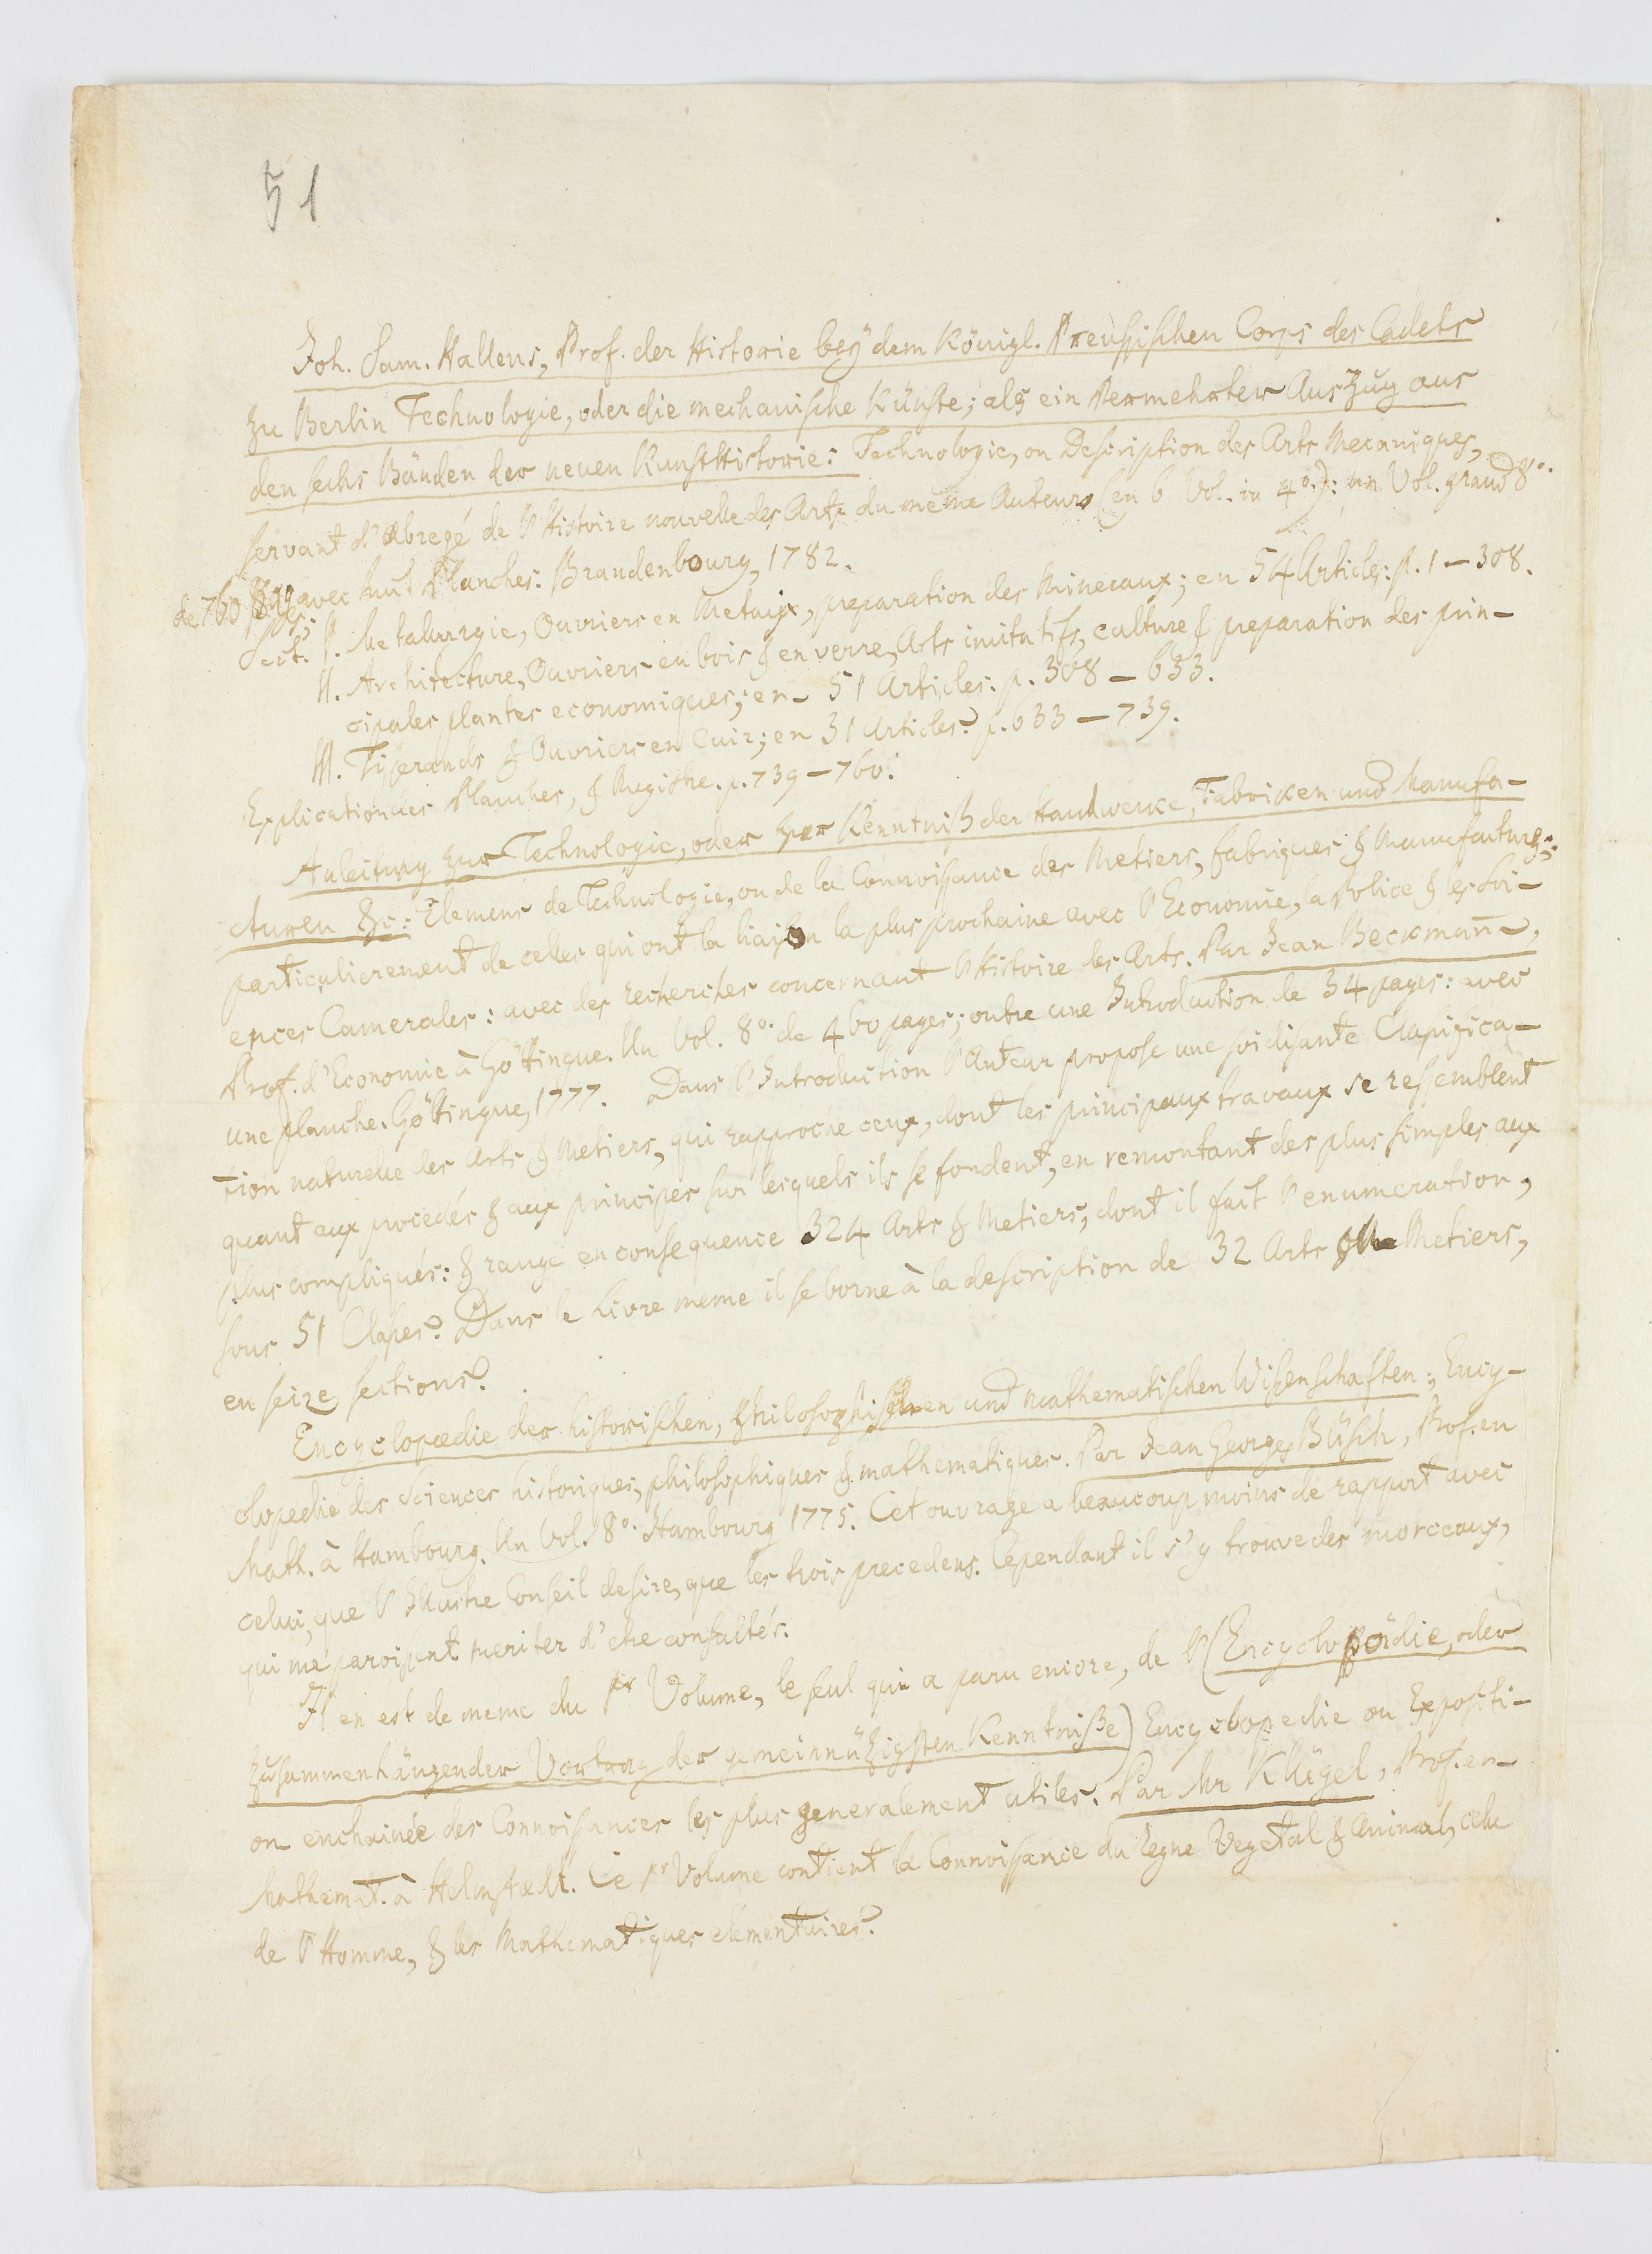 51
Joh. Sam. Hallens, Prof. der Historie bey dem Königl. Preussischen Corps des Cadets
zu Berlin Technologie, oder die mechanische Künste; als ein vermehrter Auszug aus
den sechs Bänden der neuen KunstHistorie: Technologie, ou Description des Arts Mecaniques,
servant d'Abregé de l'Histoire nouvelle des Arts du même Auteur (en 6 Vol. in 4º.): un Vol. grand 8º.
de 760 pages; avec huit Planches: Brandenbourg, 1782.
Sect. I. Metallurgie, Ouvriers en Metaux, preparation des Mineraux; en 54 Articles: p. 1 – 308.
II. Architecture, Ouvriers en bois & en verre, Arts imitatifs, culture & preparation des prin-
cipales plantes economiques; en 51 Articles: p. 308 – 633.
III. Tisserands & Ouvriers en Cuir; en 31 Articles. p. 633 – 739.
Explication des Planches, & Registre. p. 739 – 760.
Anleitung zur Technologie, oder zur Kenntniß der Handwerke, Fabriken und Manufa-
cturen &c: Elemens de Technologie, ou de la Connoissance des Metiers, fabriques & Manufactures;
particulierement de celles qui ont la liaison la plus prochaine avec l'Economie, la Police & les Sci-
ences Camerales: avec des recherches concernant l'Histoire des Arts. Par Jean Beckmañ,
Prof. d'Economie à Göttingue. Un Vol. 8º. de 460 pages; outre une Introduction de 34 pages: avec
une planche. Göttingue, 1777. Dans l'Introduction l'Auteur propose une soidisante Classifica-
tion naturelle des Arts & Metiers, qui rapproche ceux, dont les principaux travaux se ressemblent
quant aux procedés & aux principes sur lesquels ils se fondent, en remontant des plus simples aux
plus compliqués: & range en consequence 324 Arts & Metiers, dont il fait l'enumeration,
sous 51 Classes. Dans le Livre meme il se borne à la description de 32 Arts & Metiers,
en seize sections.
Encyclopædie der historischen, philosophischen und mathematischen Wissenschaften: Ency-
clopedie des Sciences historiques, philosophiques & mathematiques. Par Jean George Büsch, Prof. en
Math. à Hambourg. Un Vol. 8º. Hambourg 1775. Cet ouvrage a beaucoup moins de rapport avec
celui, que l'Illustre Conseil desire, que les trois precedens. Cependant il s'y trouve des morceaux,
qui me paroissent meriter d'etre consultés.
Il en est de meme du 1er Volume, le seul qui a paru encore, de l'(Encyclopädie, oder
zusammenhängender Vortrag der gemeinnüzigsten Kenntniße) Encyclopedie ou Expositi-
on enchainée des Connoissances les plus generalement utiles. Par Mr Klügel, Prof. en
Mathemat. à Helmstædt. Ce 1er Volume contient la Connoissance du regne Vegetal & Animal, celle
de l'Homme, & les Mathematiques elementaires.